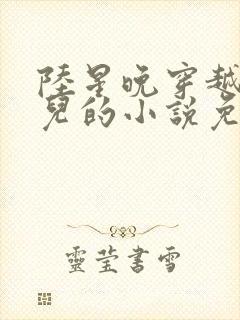 陸星晚穿越
兒的小說免
靈瑩書雪